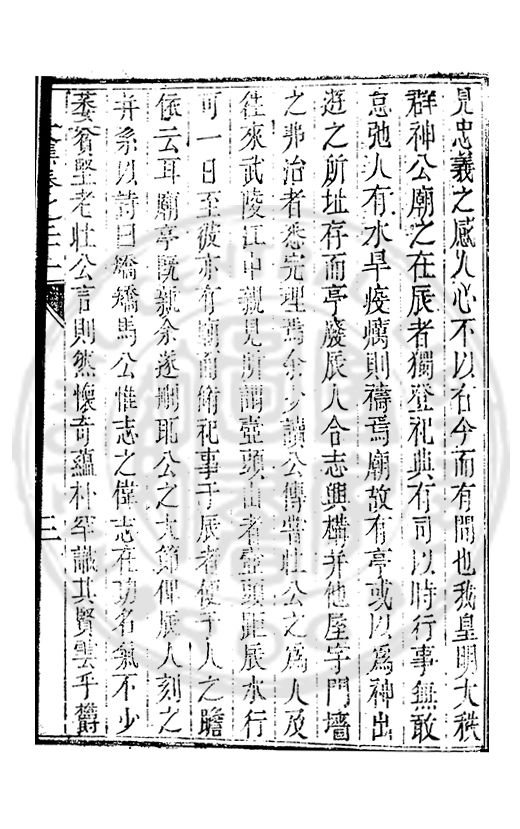 見忠義之感人心不以古今而有間也我皇明大秩
群神公廟之在辰者獨登祀典有司以時行事無敢
怠弛人有水旱疫癘則禱焉廟故有亭或以為神出
遊之所址存而亭廢辰人合志興構并他屋宇門墻
之弗治者悉完理焉余少讀公傳嘗壯公之為人及
往來武陵江中親見所謂壺頭山者壺頭距辰水行
可一日至彼亦有廟而脩祀事于辰者便于人之瞻
依云耳廟亭既新余遂刪取公之大節俾辰人刻之
并系以詩曰矯矯馬公惟志之偉志在功名氣不少
萎窮堅老壯公言則然懷奇蘊朴罕識其賢雲乎欝
文集卷之二十一
三